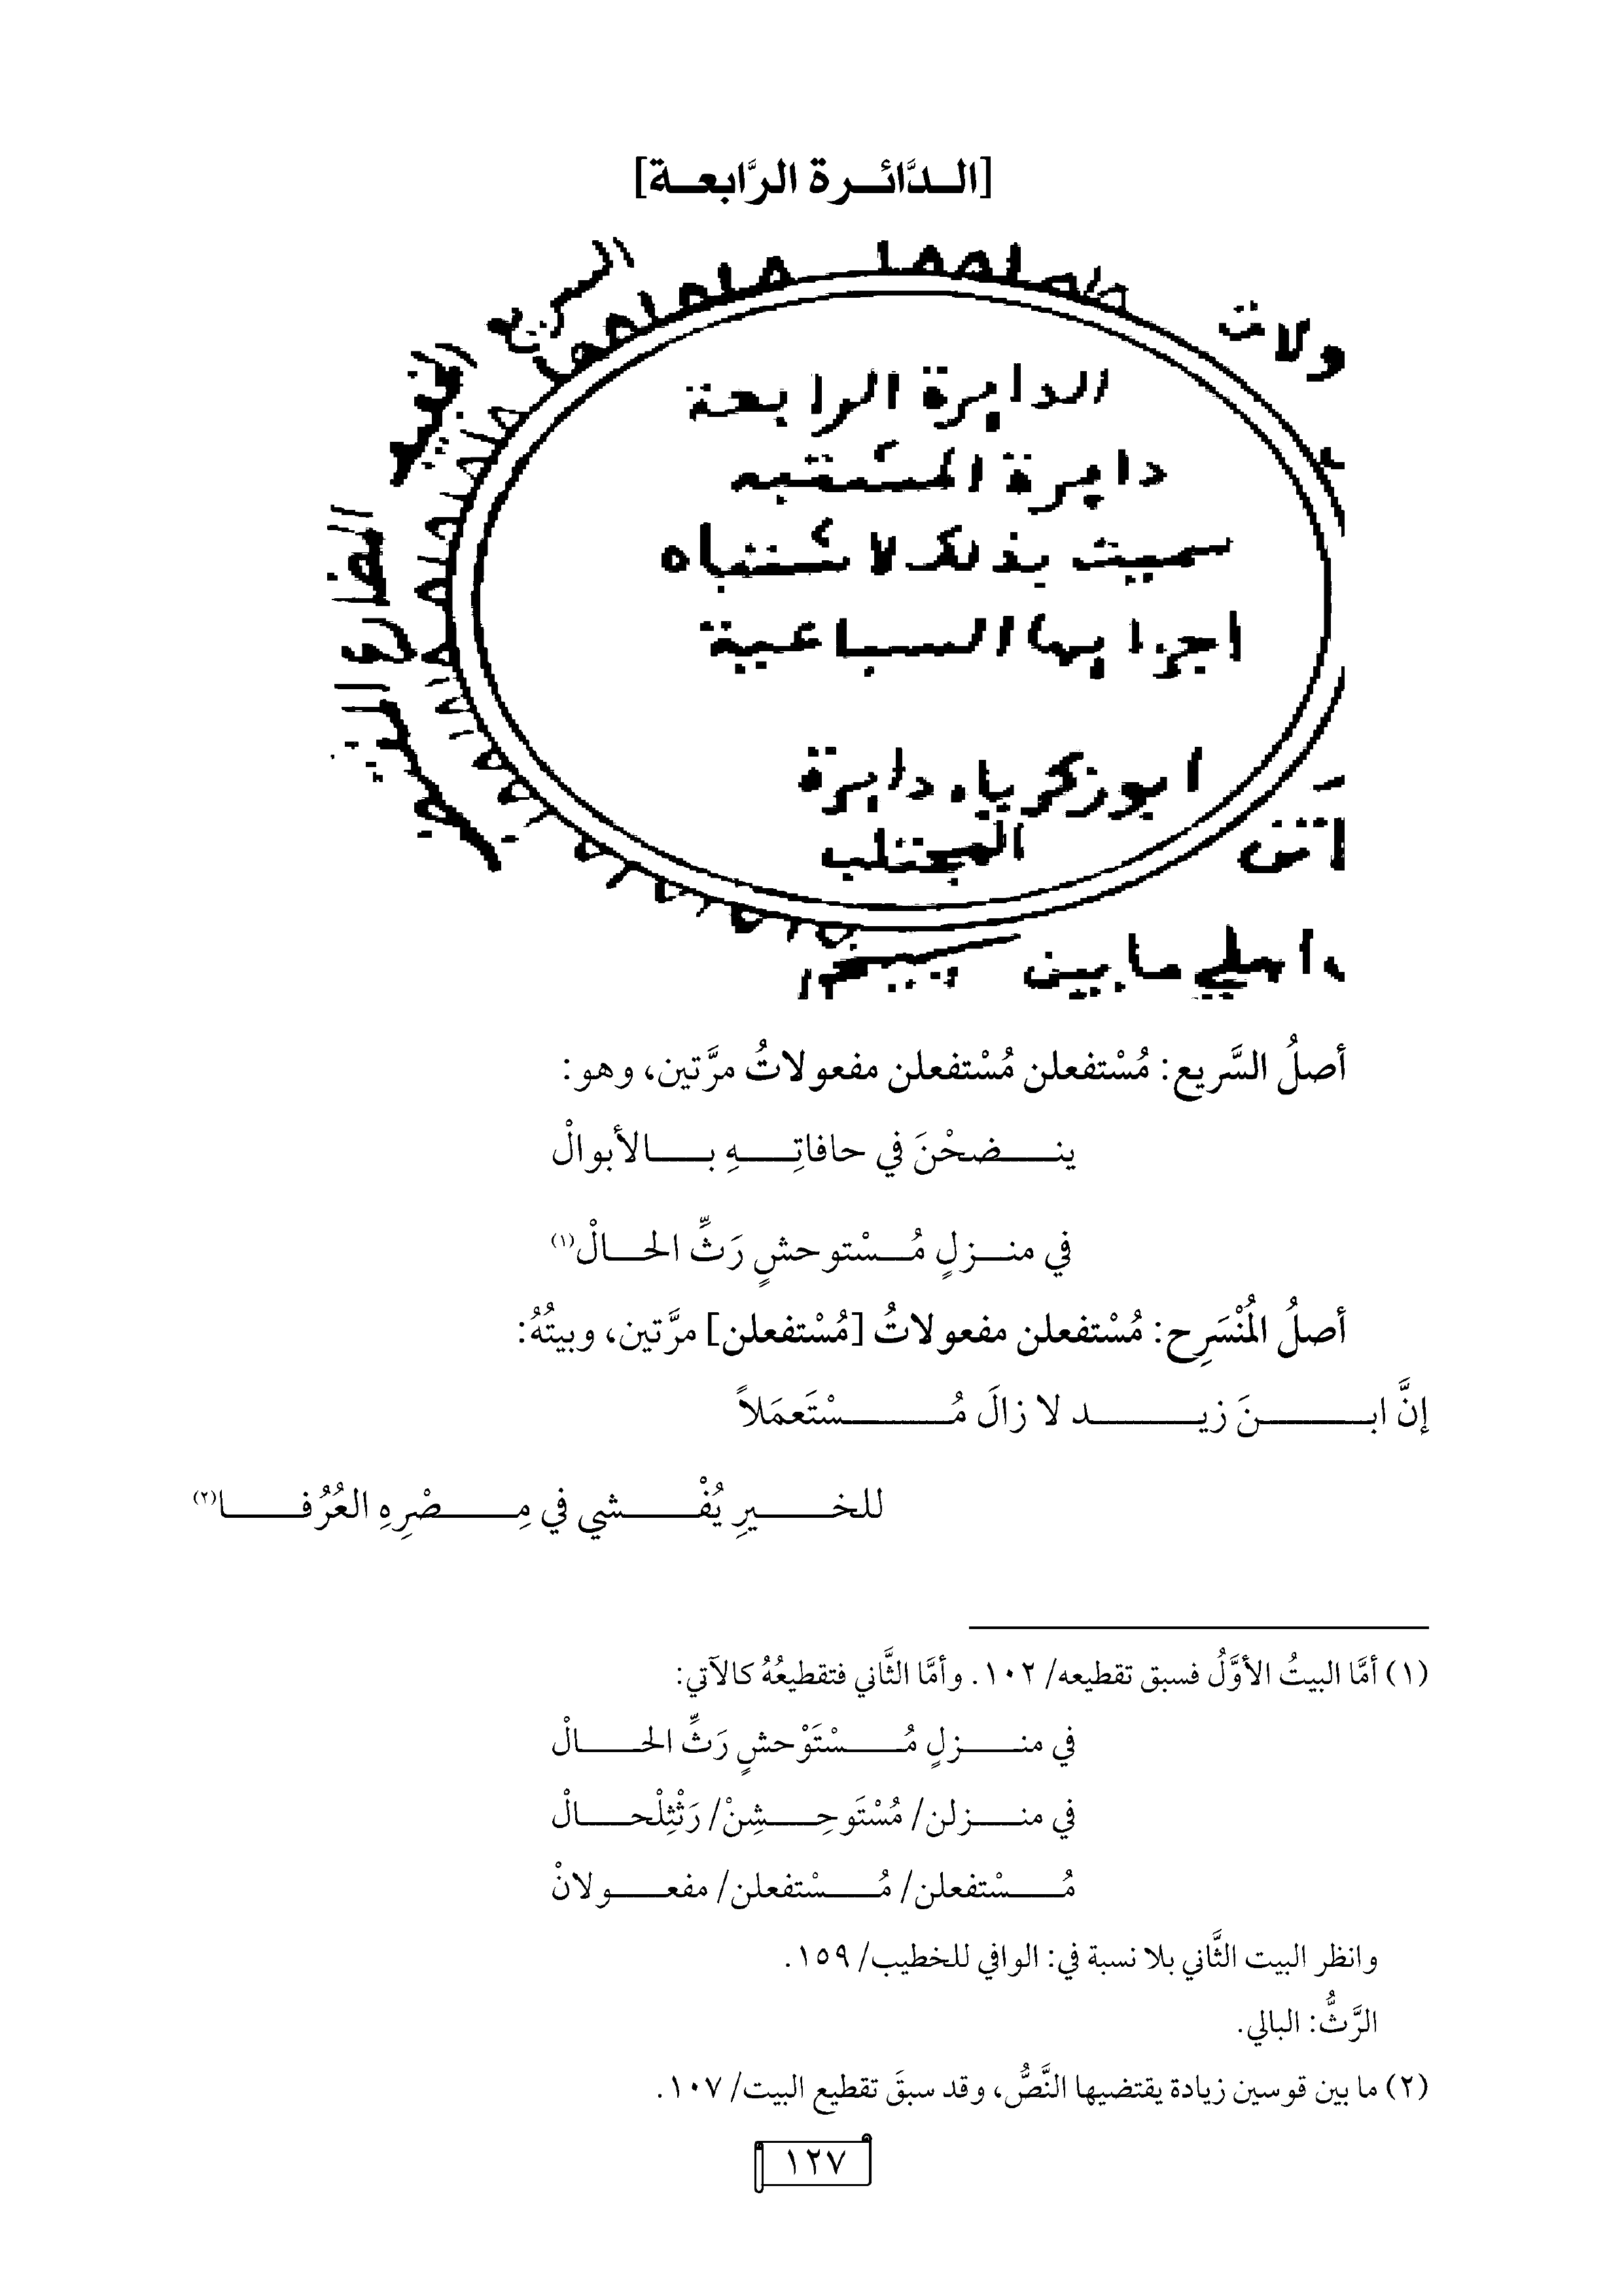 [الــدَّائــرة الرَّابعــة]
السريع
ولات
المضارع
الدايرة الرابعة
دايرة المشتبه
سميت بذلك لاشتباه
اجزايها السباعية
ابوزكرياء دايرة
المجتلب
مابين
أصلُ السَّريع: مُسْتفعلن مُسْتفعلن مفعولاتُ مرَّتين، وهو:
ينـــضحْنَ في حافاتِـــهِ بـــالأبوالْ
في منــزلٍ مُــسْتوحشٍ رَثِّ الحــالْ(١)
أصلُ المُنْسَرِح: مُسْتفعلن مفعولاتُ [مُسْتفعلن] مرَّتين، وبيتُهُ:
إنَّ ابــــنَ زيــــد لا زالَ مُــــسْتَعمَلاً
للخــــيرِ يُفْــــشي في مِــــصْرِهِ العُرُفــــا(٢)
(١) أمَّا البيتُ الأوَّلُ فسبق تقطيعه/ ١٠٢. وأمَّا الثَّاني فتقطيعُهُ كالآتي:
في منــــزلٍ مُــــسْتَوْحشٍ رَثِّ الحــــالْ
في منــــزلن/ مُسْتَوحِــــشِنْ/ رَثْثِلْحــــالْ
مُــــسْتفعلن/ مُــــسْتفعلن/ مفعــــولانْ
وانظر البيت الثَّاني بلا نسبة في: الوافي للخطيب/ ١٥٩.
الرَّثُّ: البالي.
(٢) ما بين قوسين زيادة يقتضيها النَّصُّ، وقد سبقَ تقطيع البيت/ ١٠٧.
١٢٧